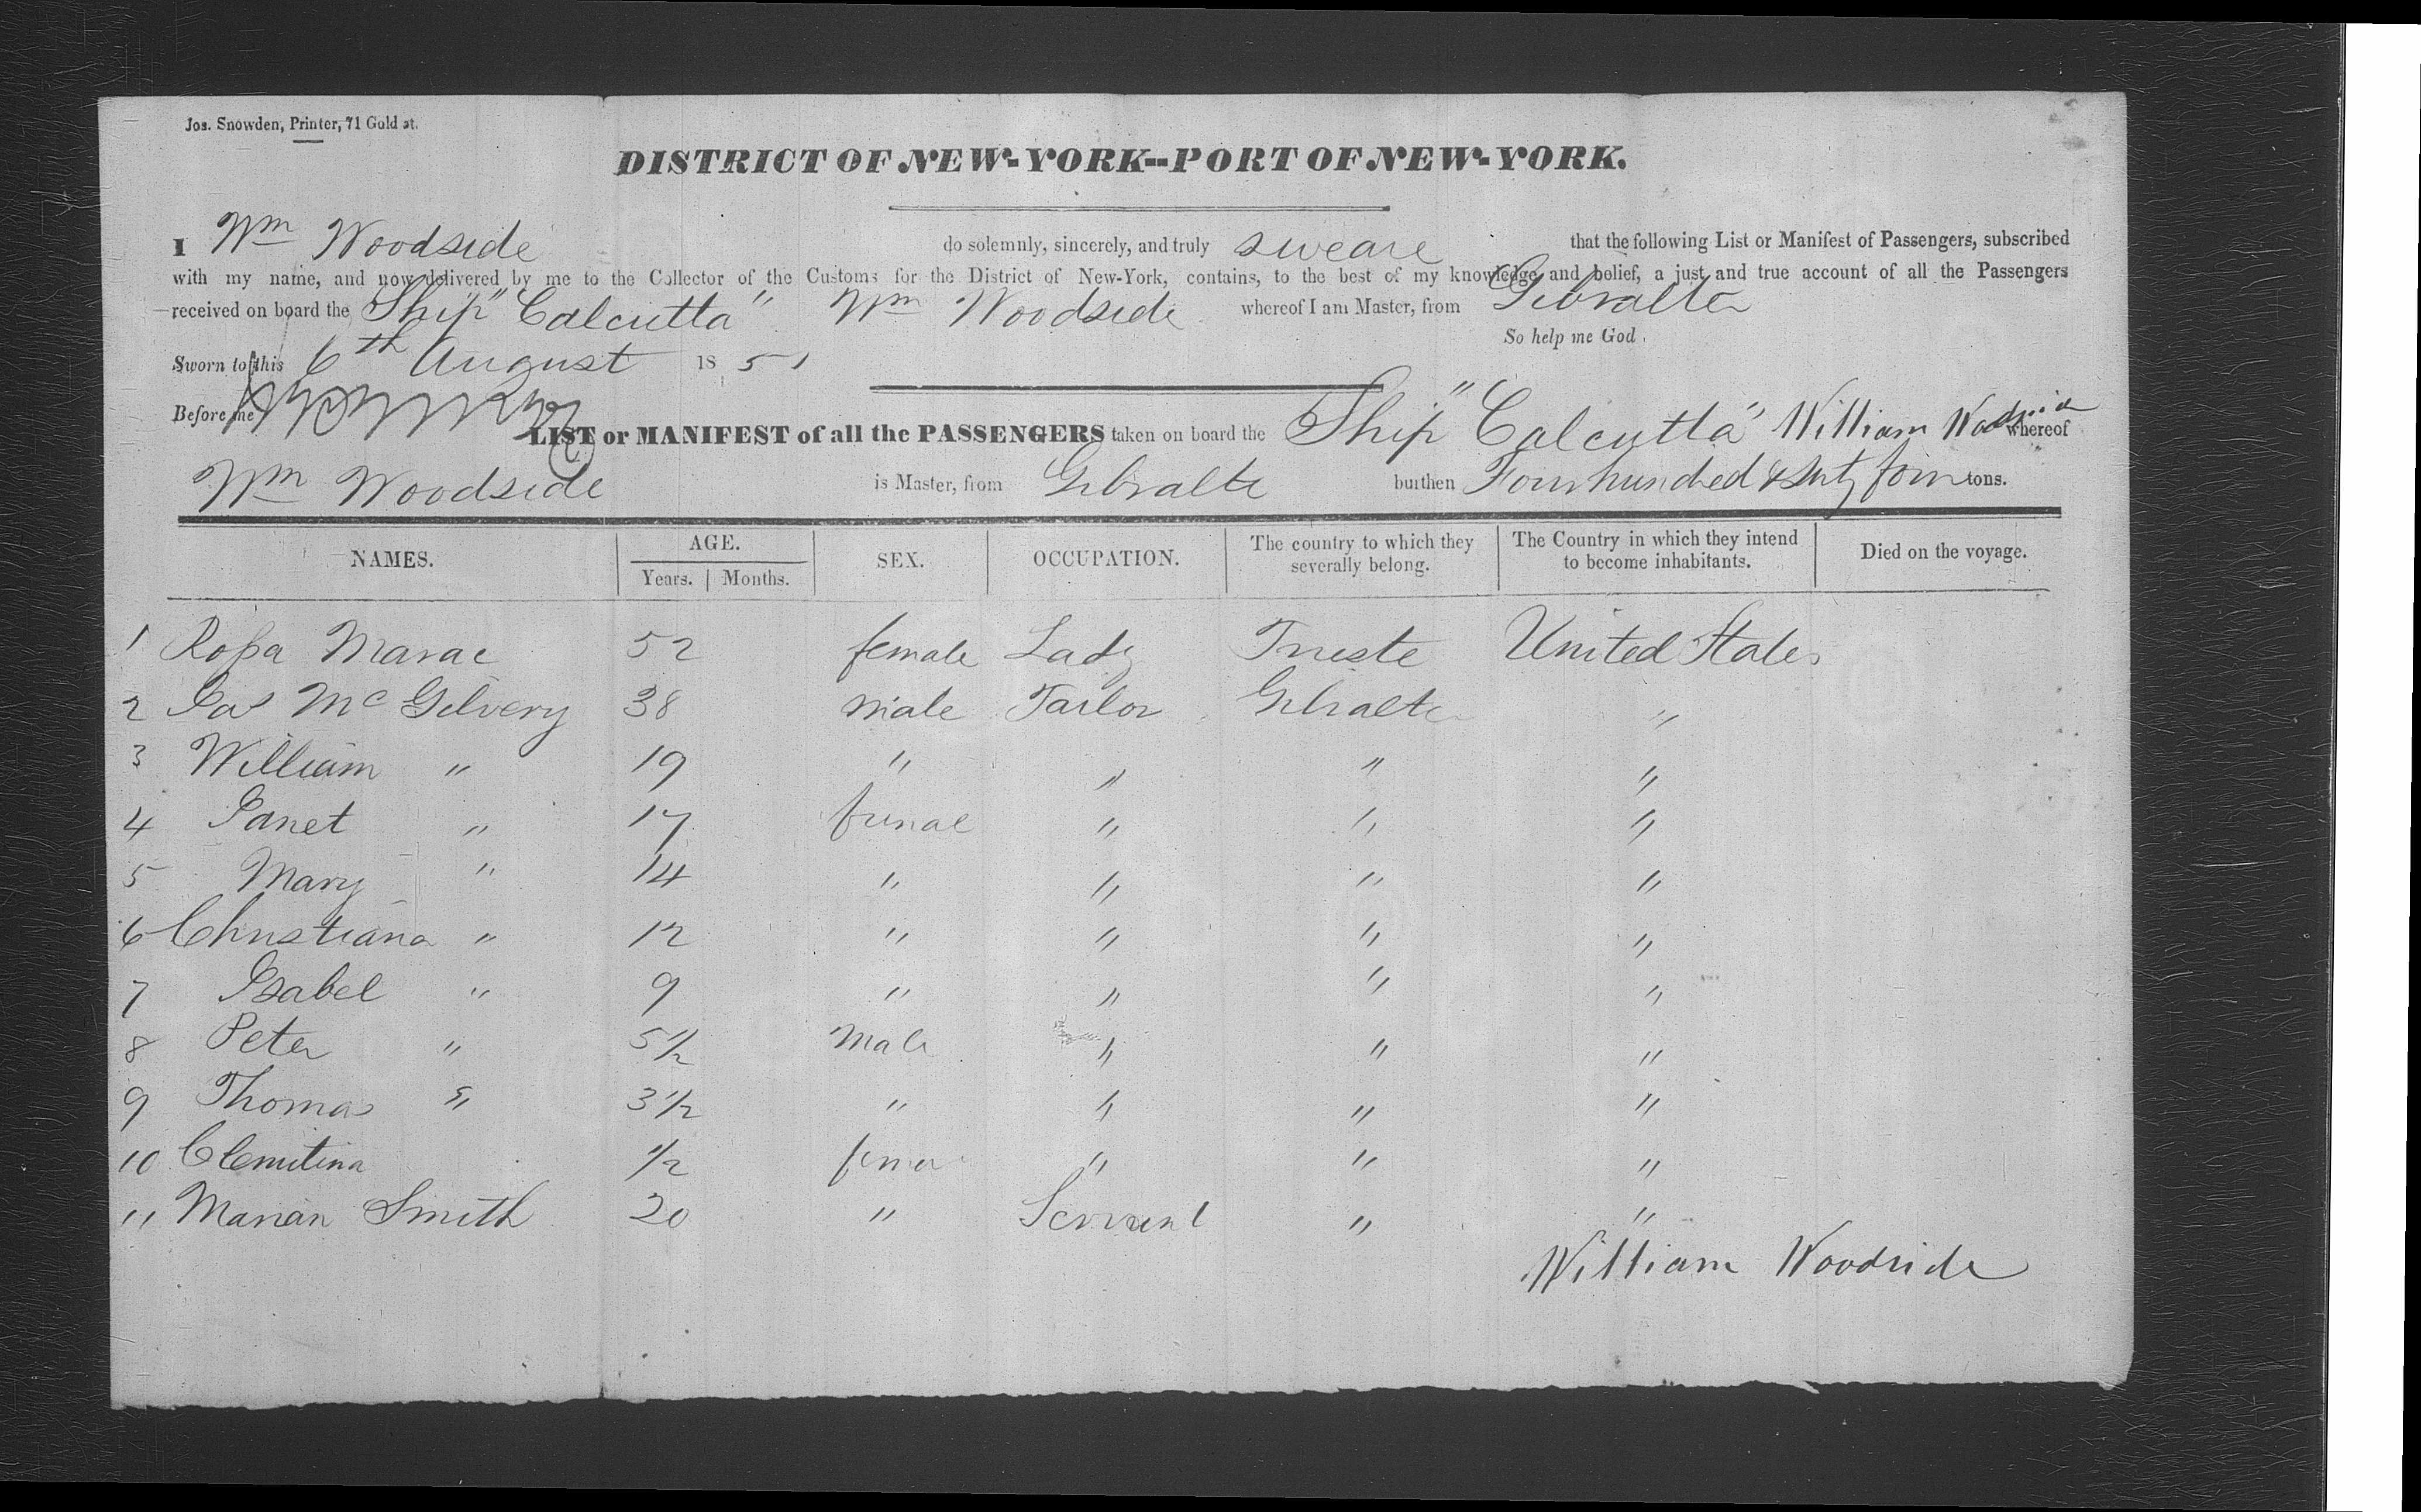 Jos. Snowden, Printer, 71 Gold st.
DISTRICT OF NEW-YORK--PORT OF NEW-YORK.
I Wm Woodside do solemnly, sincerely, and truly sweare that the following List or Manifest of Passengers, subscribed
with my name, and now delivered by me to the Collector of the Customs for the District of New-York, contains, to the best of my knowledge and belief, a just and true account of all the Passengers
received on board the Ship "Calcutta" Wm Woodside whereof I am Master, from Gibralter
So help me God.
Sworn to this 6th August 1851
Before me
LIST or MANIFEST of all the PASSENGERS taken on board the Ship "Calcutta" William Woodside whereof
Wm Woodside is Master, from Gibralte burthen Four hundred & sixty four tons.
NAMES. AGE. Years. Months. SEX. OCCUPATION. The country to which they severally belong. The Country in which they intend to become inhabitants. Died on the voyage.
1 Rossa Marac 52 female Lady Trieste United States
2 Jas McGilvery 38 male Tailor Gibralte "
3 William " 19 " " " "
4 Janet " 17 femal " " "
5 Mary " 14 " " " "
6 Christiana " 12 " " " "
7 Isabel " 9 " " " "
8 Peter " 5 1/2 Male " " "
9 Thomas " 3 1/2 " " " "
10 Clemitina 1/2 fema " " "
11 Marian Smith 20 " Servant " "
William Woodside